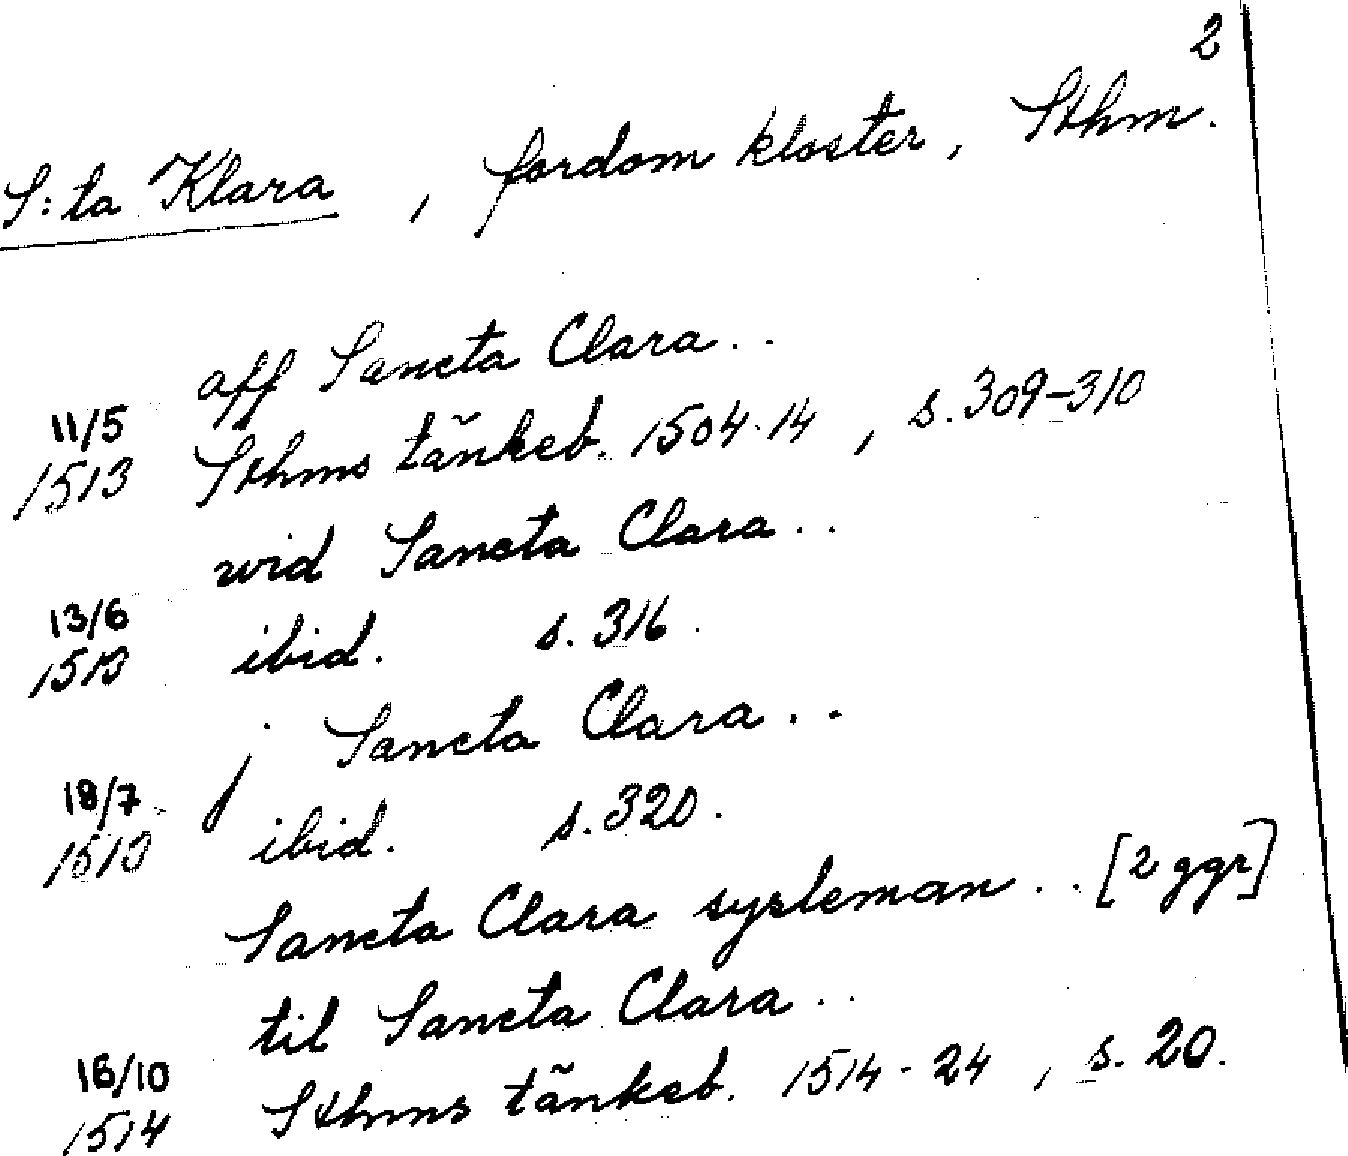 2
S:ta Klara , fordom kloster, Sthm.
aff Sancta Clara..
11/5
1513 Sthms tänkeb. 1504-14 , s. 309-310
wid Sancta Clara..
13/6
1513 ibid. s. 316.
j Sancta Clara..
18/7
1513 ibid. s. 320.
Sancta Clara sysleman.. [2 ggr]
til Sancta Clara..
16/10
1514 Sthms tänkeb. 1514-24 , s. 20.